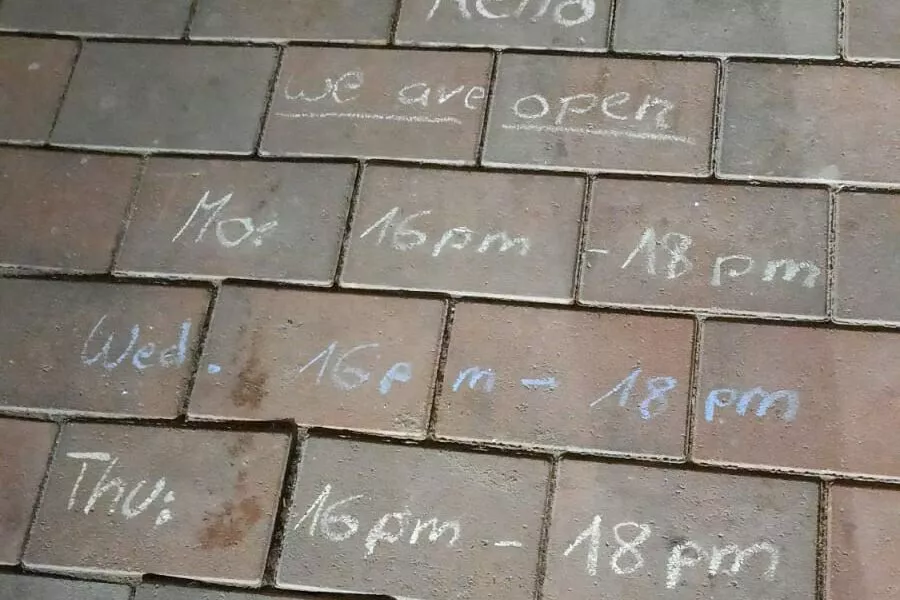 we are open
Mo: 16pm - 18pm
Wed. 16pm - 18pm
Thu: 16pm - 18pm